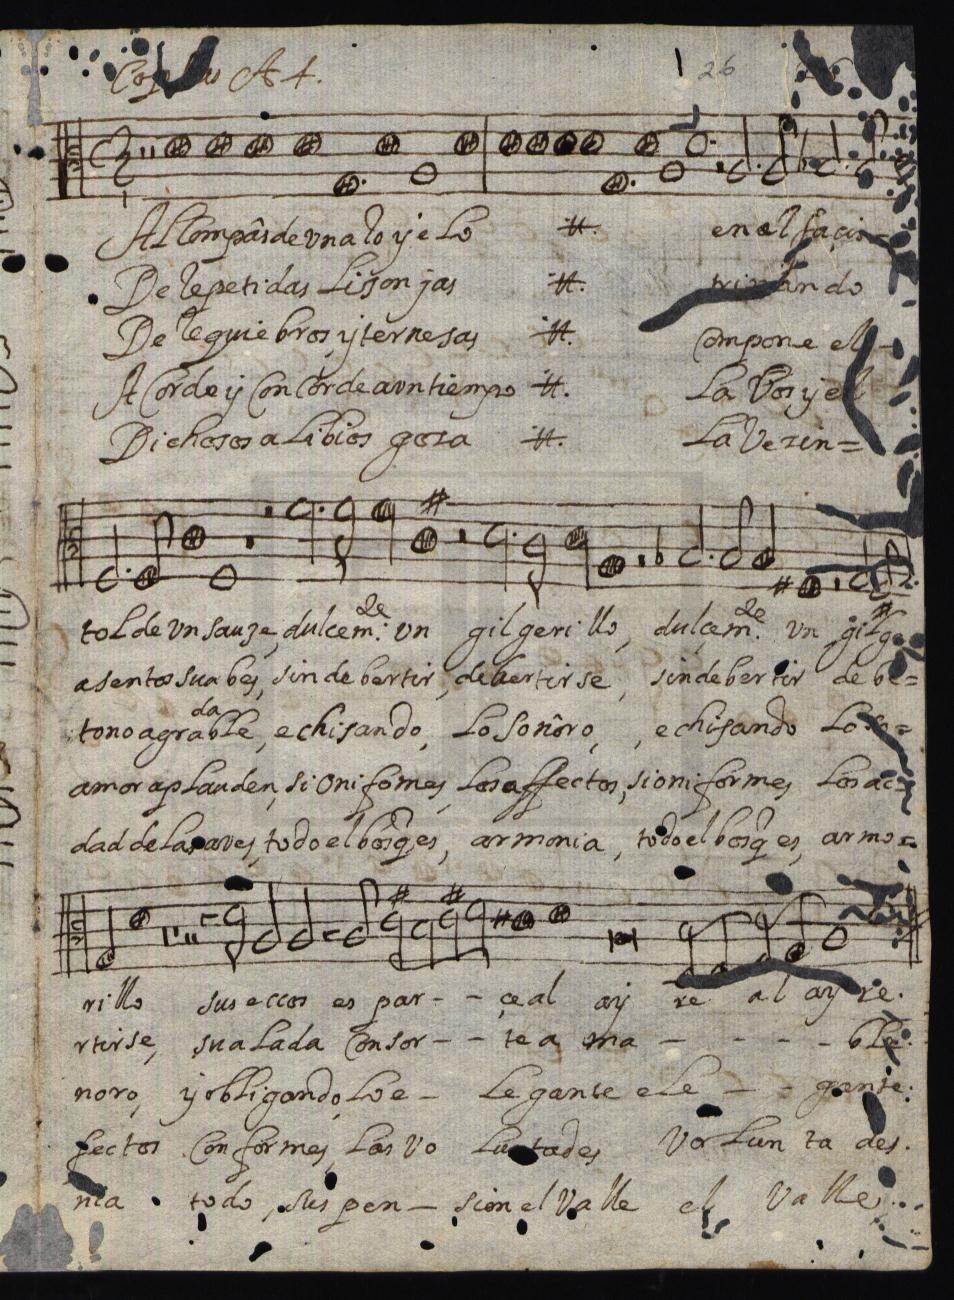 Coplas A 4. 26
Al Compás de un aroyelo # en el façis-
De repetidas Lisonjas # trinando
De requiebros, y ternesas # compone el-
A Corde y Concorde a vn tiempo # La Vos y el
Dichosos alibios gosa # La Verin=
tol de vn sauze, dulcem.te vn gilgerillo, dulcem.te vn gilge
asentos suabes, sin debertir, debertirse, sin debertir debe=
tono agradable, echisando, Lo sonóro, echisando Lo so=
amor aplauden, si oniformes, Los affectos, si oniformes Los ac=
dad de Las aves, todo el bosq̃ es, armonia, todo el bosq̃ es, armo=
rillo sus eccos es par- - çe al ay re al ay re.
rtirse, su alada Consor- - te a ma - - - - ble.
noro, y obligando, Lo e- Legante ele - - gante.
fectos Conformes, Las Vo Luntades Vo Lun ta des.
nia todo, suspen- sion el Valle el Valle.